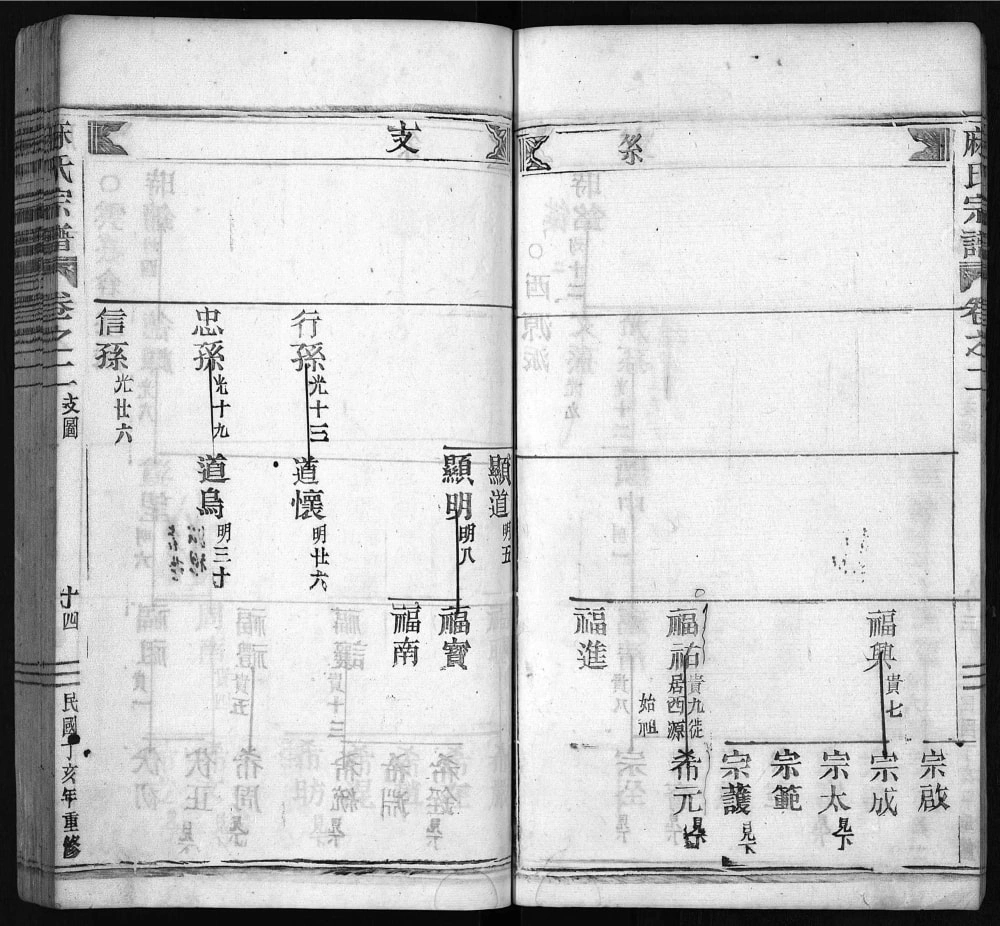 麻氏宗譜 卷之二
系
宗啟
福興 貴七
宗成
宗太 見下
宗範
宗護 見下
福祐 貴九徙居西源始祖
希元 見下
福進
支
顯道 明五
顯明 明八
福寶
福南
行孫 光十三
道懷 明廿六
忠孫 光十九
道烏 明三十
信孫 光廿六
麻氏宗譜 卷之二 支圖 十四 民國丁亥年重修